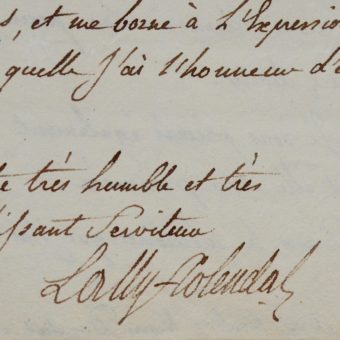 s, et me borne à L'Expression
quelle J'ai l'honneur d'ê
te très humble et très
issant Serviteur
Lally Tolendal